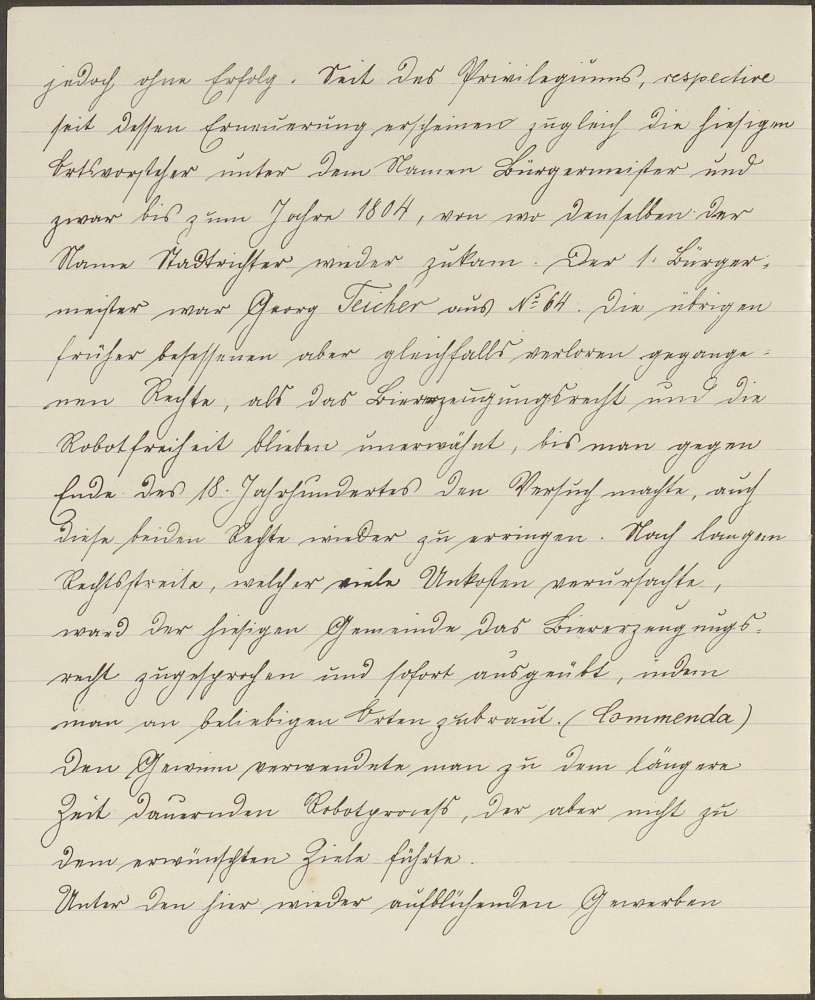 jedoch ohne Erfolg. Seit des Privilegiums, respective
seit dessen Erneuerung erscheinen zugleich die hiesigen
Ortsvorsteher unter dem Namen Bürgermeister und
zwar bis zum Jahre 1804, von wo denselben der
Name Stadtrichter wieder zukam. Der 1. Bürger-
meister war Georg Teicher aus No 64. Die übrigen
früher besessenen aber gleichfalls verloren gegange-
nen Rechte, als das Biererzeugungsrecht und die
Robotfreiheit blieben unerwähnt, bis man gegen
Ende des 18. Jahrhundertes den Versuch machte, auch
diese beiden Rechte wieder zu erringen. Nach langem
Rechtsstreite, welcher viele Unkosten verursachte,
ward der hiesigen Gemeinde das Biererzeugungs-
recht zugesprochen und sofort ausgeübt, indem
man an beliebigen Orten zubraut. (Commenda)
Den Gewinn verwendete man zu dem längere
Zeit dauernden Robotprocess, der aber nicht zu
dem erwünschten Ziele führte.
Unter den hier wieder aufblühenden Gewerben